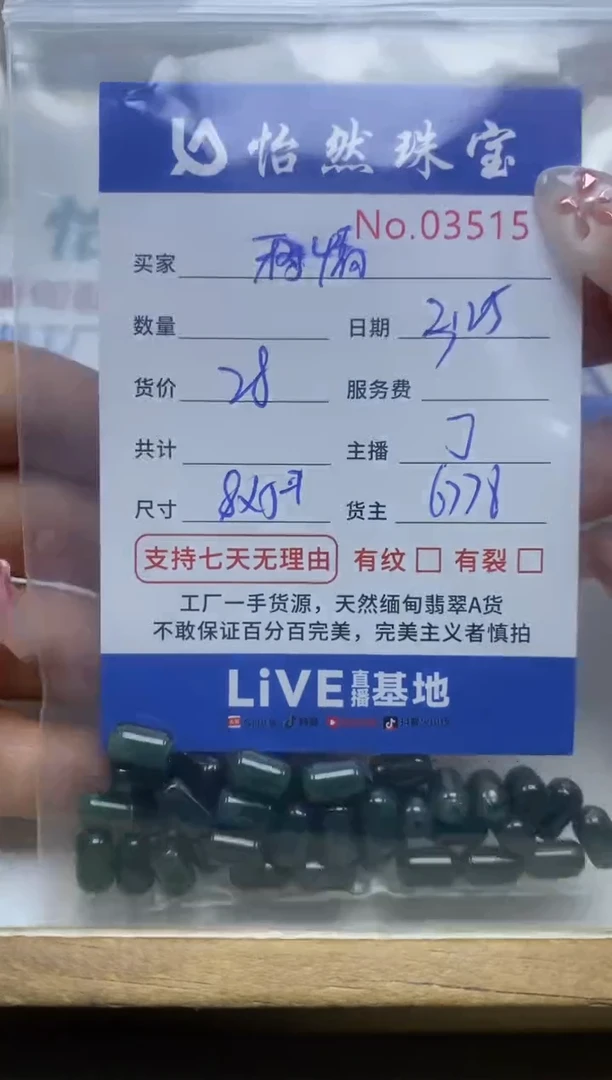 怡然珠宝
No.03515
买家
数量 日期 2,25
货价 28 服务费
共计 主播
尺寸 货主 6778
支持七天无理由 有纹 有裂
工厂一手货源，天然缅甸翡翠A货
不敢保证百分百完美，完美主义者慎拍
LiVE直播基地